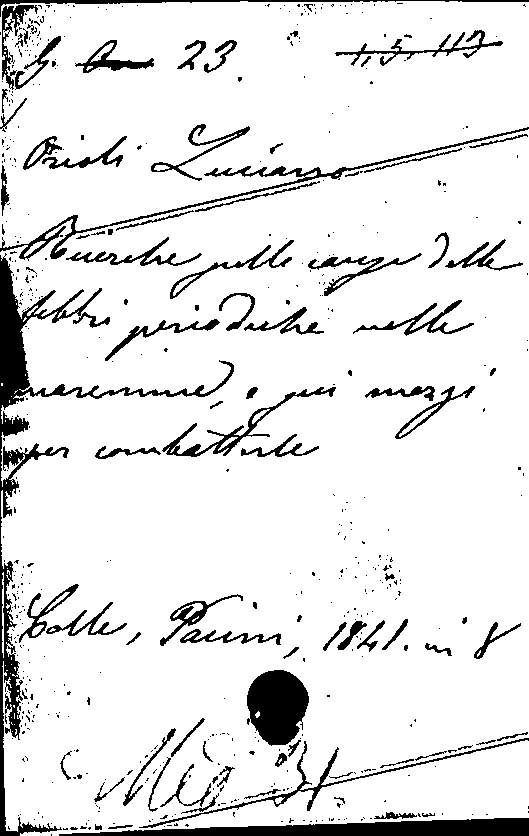 G. 23.
1, 5, 113
Orioli Luciano
Ricerche sulle cause delle
febbri periodiche nelle
maremme, e sui mezzi
per combatterle
Colle, Pacini, 1841. in 8
Med 31.